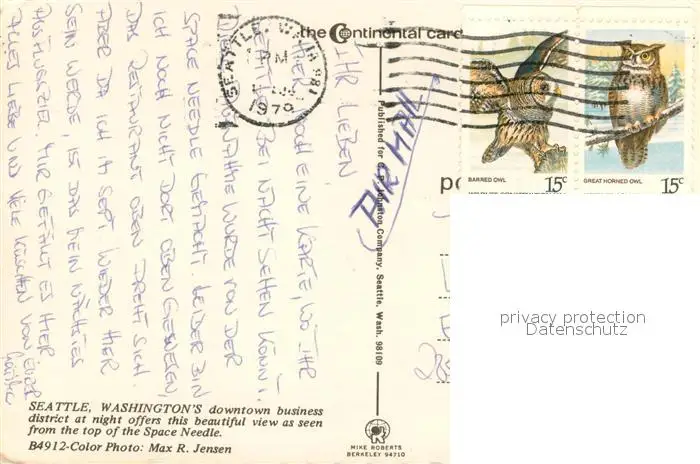 the Continental card
SEATTLE, WA 981
PM
1979
BARRED OWL
15c
GREAT HORNED OWL
15c
AIR MAIL
Published for C. P. Johnston Company, Seattle, Wash. 98109
IHR LIEBEN!
HIER NOCH EINE KARTE, WO IHR
SEATTLE BEI NACHT SEHEN KÖNNT.
DIE AUFNAHME WURDE VON DER
SPACE NEEDLE GEMACHT. LEIDER BIN
ICH NOCH NICHT DORT OBEN GEWESEN,
DAS RESTAURANT OBEN DREHT SICH.
ABER DA ICH IM SEPT. WIEDER HIER
SEIN WERDE, IST DAS MEIN NÄCHSTES
AUSFLUGSZIEL. MIR GEFÄLLT ES HIER.
ALLES LIEBE UND VIELE KÜSSCHEN VON EURER
SEATTLE, WASHINGTON'S downtown business
district at night offers this beautiful view as seen
from the top of the Space Needle.
B4912-Color Photo: Max R. Jensen
MIKE ROBERTS
BERKELEY 94710
privacy protection
Datenschutz